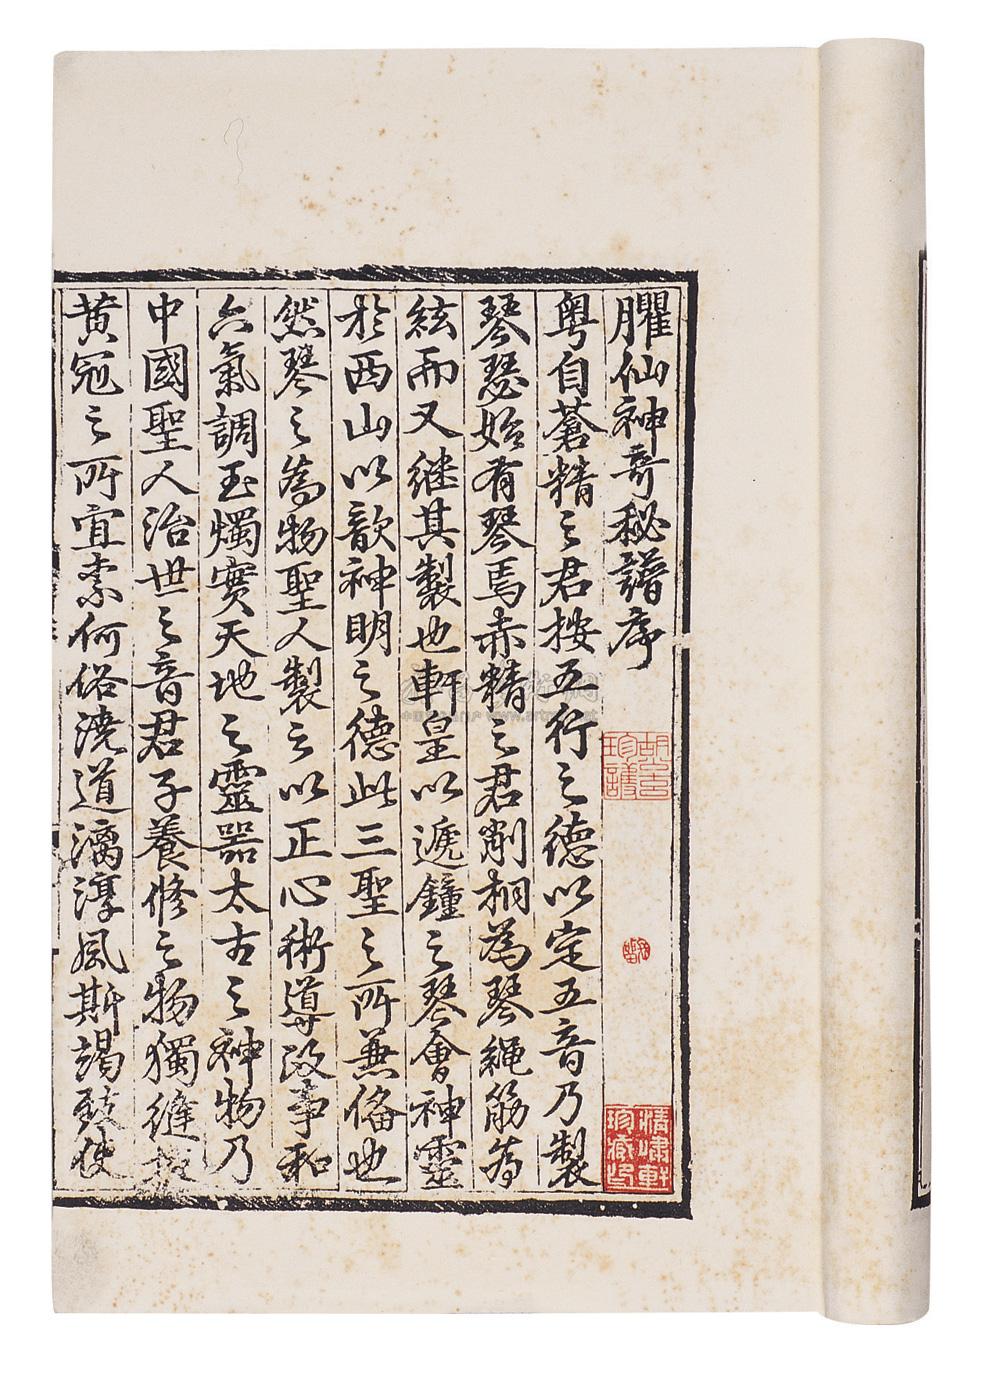 臞仙神奇秘譜序
粤自蒼精之君按五行之德以定五音乃製
琴瑟始有琴焉赤精之君削桐為琴繩筋為
絃而又继其製也軒皇以遞鐘之琴會神靈
於西山以歆神明之德此三聖之所兼俻也
然琴之為物聖人製之以正心術導政事和
六氣調玉燭實天地之靈噐太古之神物乃
中國聖人治世之音君子養修之物獨縫掖
黃冠之所宜素何俗澆道漓淳風斯竭致使
清嘯軒
珍藏印